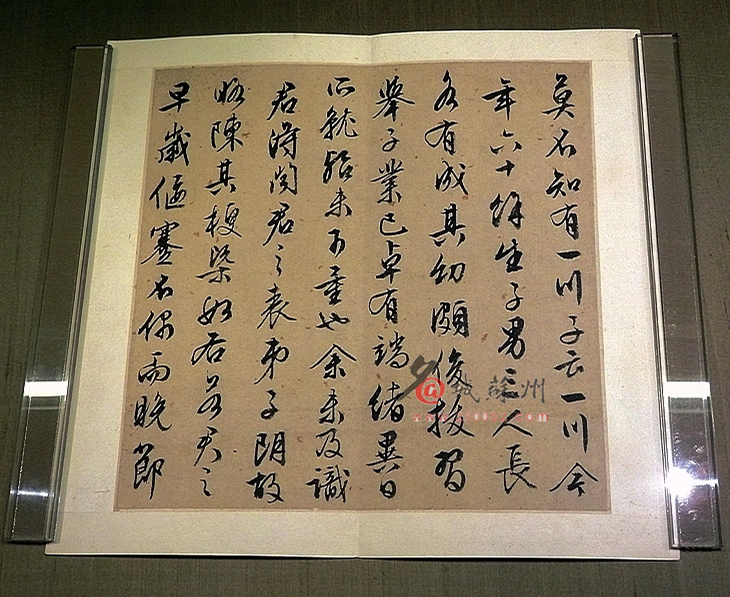 莫不知有一川子云一川今
年六十餘生子男三人長
各有成其幼頗俊拔習
舉子業已卓有端緒異日
所就殆未可量也余未及識
君得君之表弟子朗故
略陳其梗槩如右若君之
早歲偃蹇不偶而晚節
名城蘇州